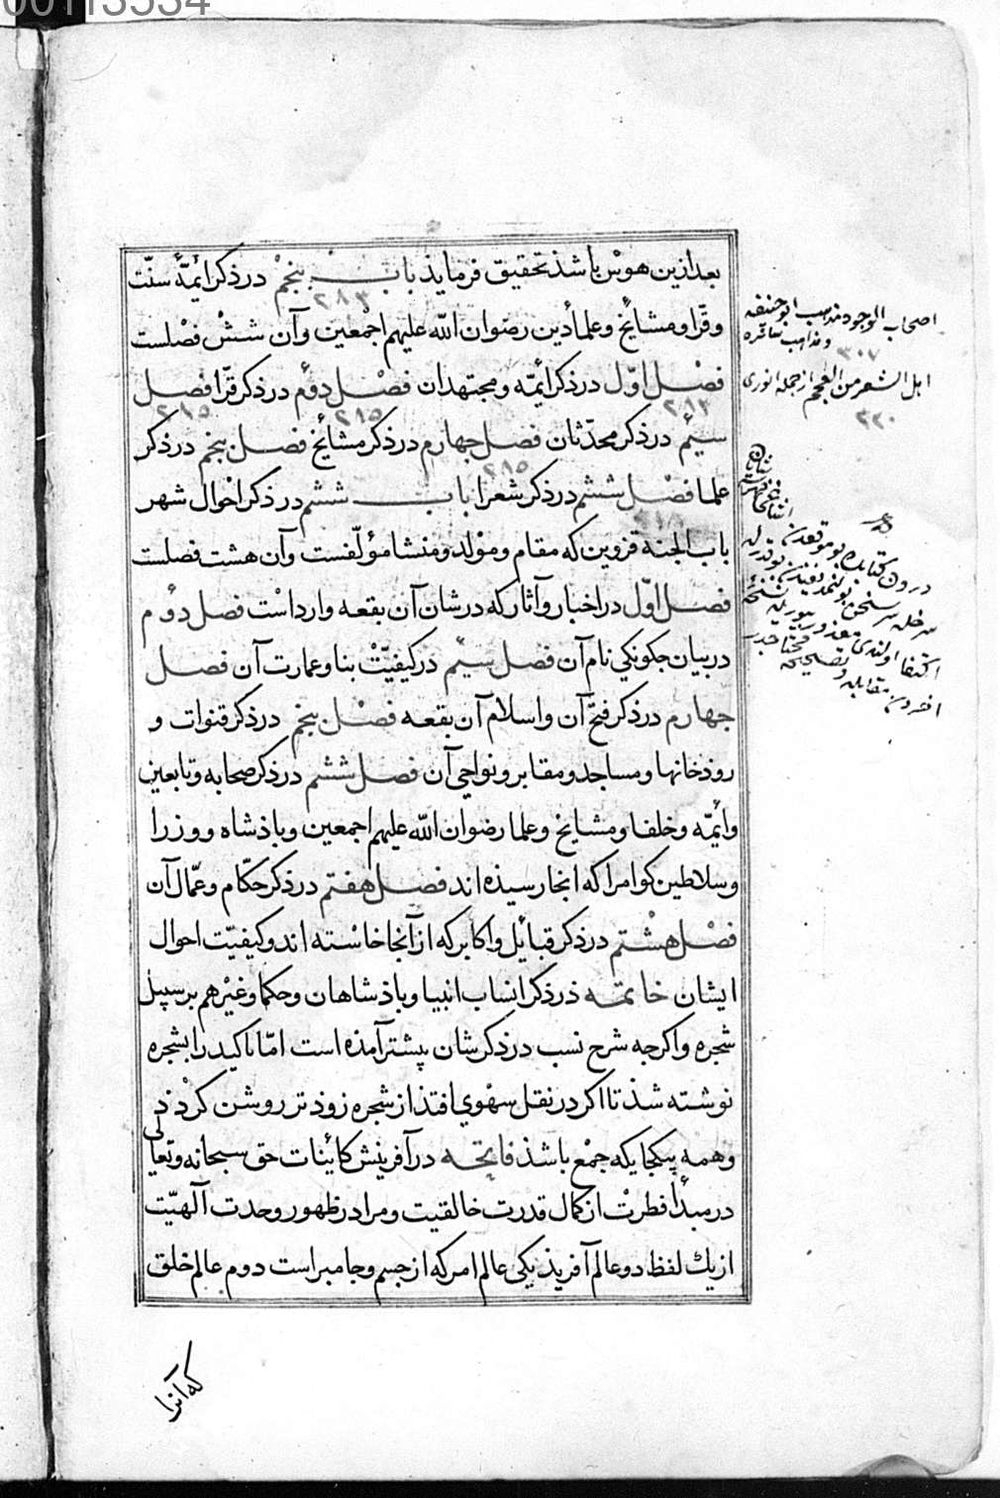 00113534
بعد ازین هوس باشذ تحقیق فرمایذ باب پنجم در ذکر ایمّهٔ سنّت
۲۸۳
وقرّا ومشایخ وعلمأ دین رضوان اللّه علیهم اجمعین وآن شش فصلست
فصل اوّل در ذکر ایمّه ومجتهدان فصل دوّم در ذکر قرّا فصل
۲۸۳ ۲۸۵ ۲۸۵
سیّم در ذکر محدّثان فصل چهارم در ذکر مشایخ فصل پنجم در ذکر
۲۸۵
علما فصل ششم در ذکر شعرا باب ششم در ذکر احوال شهر
باب الجنه قزوین که مقام ومولد ومنشا مؤلّفست وآن هشت فصلست
فصل اوّل در اخبار وآثار که در شان آن بقعه وارداست فصل دوّم
در بیان جکونکی نام آن فصل سیّم در کیفیّت بنا وعمارت آن فصل
جهارم در ذکر فتح آن واسلام آن بقعه فصل پنجم در ذکر قنوات و
روذخانها ومساجد ومقابر ونواحی آن فصل ششم در ذکر صحابه وتابعین
وایمّه وخلفا ومشایخ وعلما رضوان اللّه علیهم اجمعین وباذشاه ووزرا
وسلاطین کو امرا که انجا رسیذه اند فصل هفتم در ذکر حکّام وعمّال آن
فصل هشتم در ذکر قبایل واکابر که از آنجا خاسته اند وکیفیّت احوال
ایشان خاتمه در ذکر انساب انبیا وباذشاهان وحکما وغیرهم بر سبیل
شجره واکرجه شرح نسب در ذکرشان پیشتر آمذه است امّا تاکید را بشجره
نوشته شذ تا اکر در نقل سهوی افتذ از شجره زوذتر روشن کردذ
وهمه بیکجایکه جمع باشذ فاتحه در آفرینش کاینات حق سبحانه وتعالی
در مبدأ فطرت از کمال قدرت خالقیت ومراد در ظهور وحدت آلهیّت
از یك لفظ دو عالم آفریذ یکی عالم امر که از جسم وجا مبراست دوم عالم خلق
که آنرا
اصحاب الوجود مذهب ابو حنیفه
ومذاهب سائره
۳۰۷
اهل الشعر من العجم از جمله انوری
۳۲۰